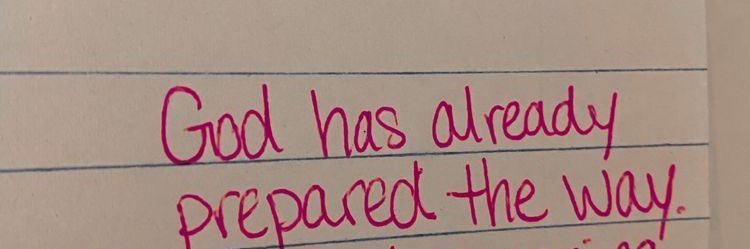 God has already
prepared the way.